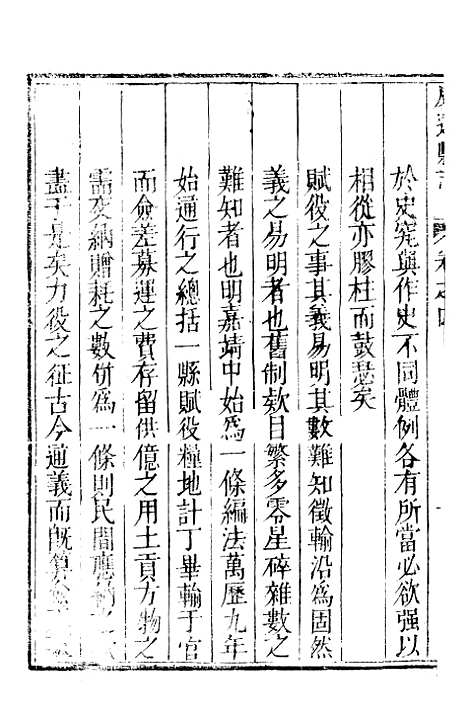 縣志 卷之四
於史究與作史不同體例各有所當必欲强以
相從亦膠柱而鼓瑟矣
賦役之事其義易明其數難知徵輸沿為固然
義之易明者也舊制欵目繁多零星碎雜數之
難知者也明嘉靖中始為一條編法萬歷九年
始通行之總括一縣賦役糧地計丁畢輸于官
而僉差募運之費存留供億之用土貢方物之
需交納贈耗之數併為一條則民間應納之
盡于是矣力役之征古今通義而既算